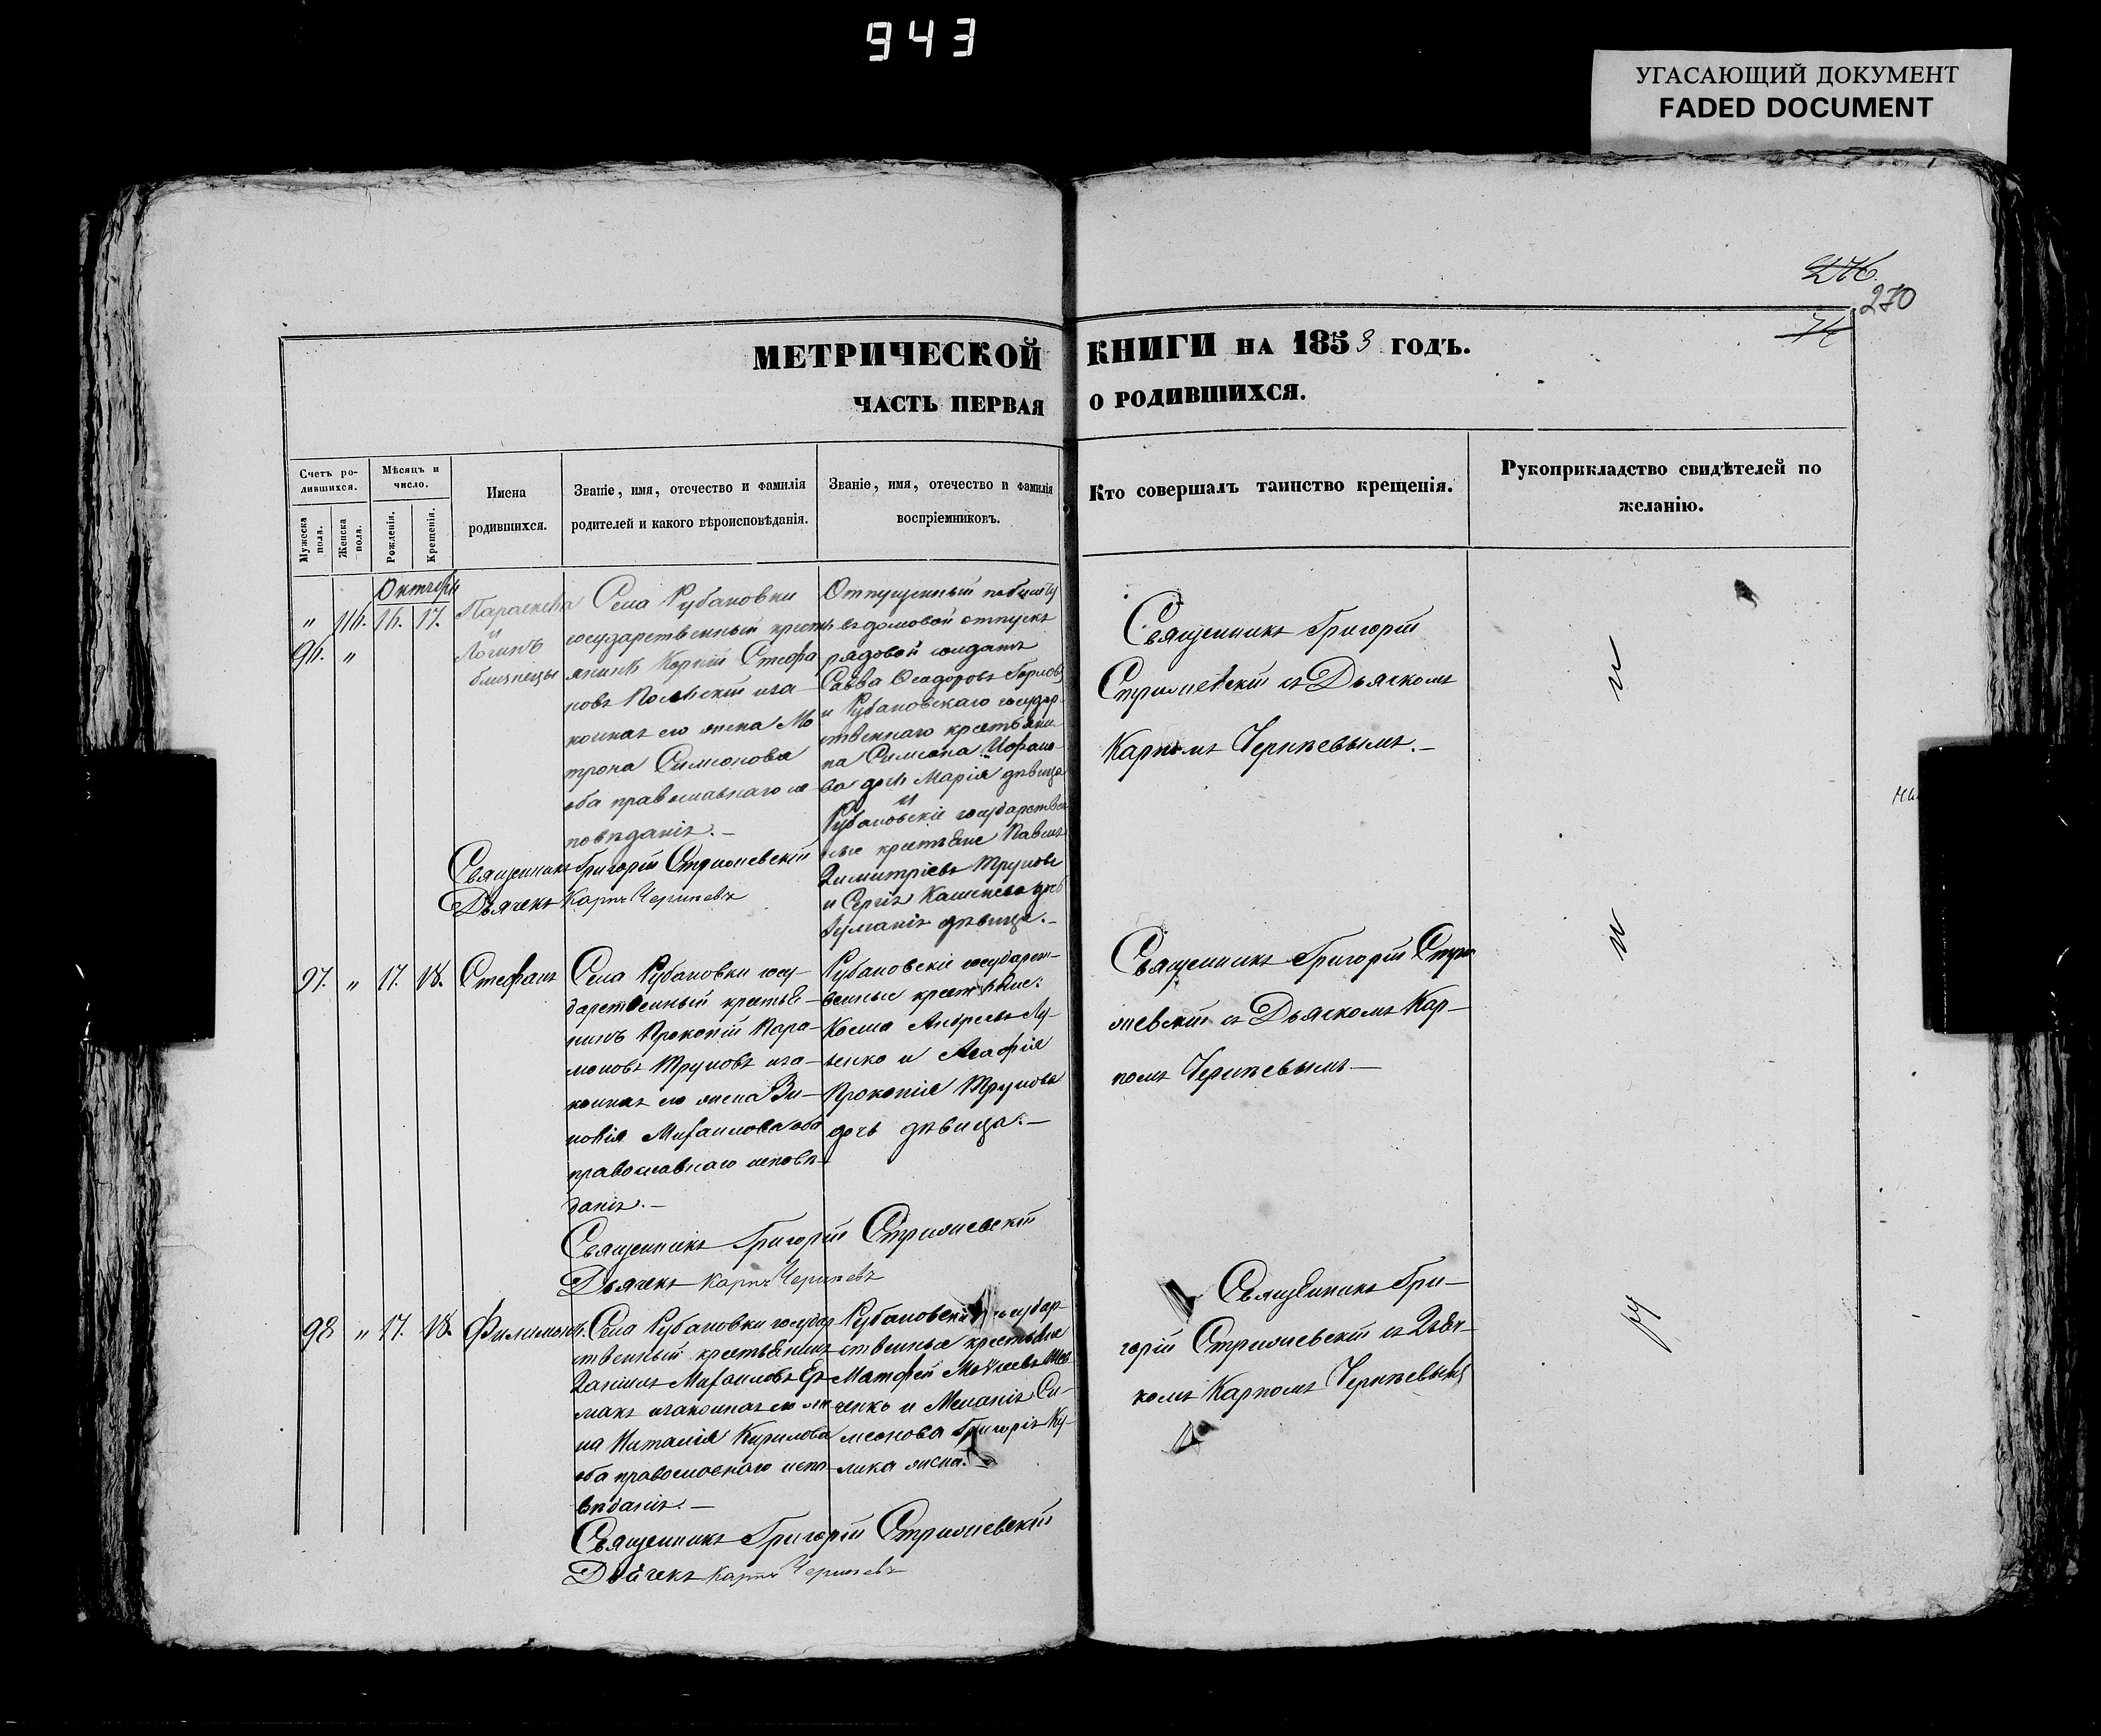 943
УГАСАЮЩИЙ ДОКУМЕНТ
FADED DOCUMENT
276.
270
74
МЕТРИЧЕСКОЙ КНИГИ НА 1853 ГОДЪ.
ЧАСТЬ ПЕРВАЯ О РОДИВШИХСЯ.
Счетъ ро-
дившихся.
Мужеска пола.
Женска пола.
Мѣсяцъ и
число.
Рожденія.
Крещенія.
Имена
родившихся.
Званіе, имя, отечество и фамилія
родителей и какого вѣроисповѣданія.
Званіе, имя, отечество и фамилія
воспріемниковъ.
Кто совершалъ таинство крещенія.
Рукоприкладство свидѣтелей по
желанію.
Октябрь
„ 116. 16. 17.
96. „
Параскева
и
Логинъ
близнецы
Села Рубановки
государственный кресть
янинъ Корній Стефа
новъ
законная его жена Ма
трона Симеонова
оба православнаго ис
повѣданія.–
Священникъ Григорій Стрижевскій
Дьячекъ Карпъ
Отпущенный
въ домовой отпускъ
рядовой солдатъ
Савва Ѳеодоровъ
и Рубановскаго государ
ственнаго крестьяни
на Симеона
ва дочь Марія дѣвица
и
Рубановскіе государствен
ные крестьяне Павелъ
Димитріевъ Труновъ
и Сергія дочь
дѣвица.–
Священникъ Григорій
Стрижевскій съ Дьячкомъ
Карпомъ
97. „ 17. 18. Стефанъ
Села Рубановки госу-
дарственный крестья-
нинъ Прокопій Пара-
моновъ Труновъ и за-
конная его жена Зи-
новія Михаилова оба
православнаго исповѣ-
данія.–
Священникъ Григорій Стрижевскій
Дьячекъ Карпъ
Рубановскіе государст-
венные крестьяне:
Косма Андреевъ Лу-
ценко и Агафія
Прокопія Трунова
дочь дѣвица.–
Священникъ Григорій Стри
жевскій съ Дьячкомъ Кар-
помъ
98 „ 17. 18. Филимонъ.
Села Рубановки государ
ственный крестьянинъ
Даніилъ Михаиловъ Ер-
макъ и законная его же
на Наталія Кирилова
оба православнаго испо-
вѣданія.–
Священникъ Григорій Стрижевскій
Дьячекъ Карпъ
Рубановскіе государ-
ственные крестьяне
Матфей Моѵсеевъ Шев
ченко и Меланія Си-
меонова Григорія Ку-
лика жена.–
Священникъ Гри-
горій Стрижевскій съ Дьяч-
комъ Карпомъ